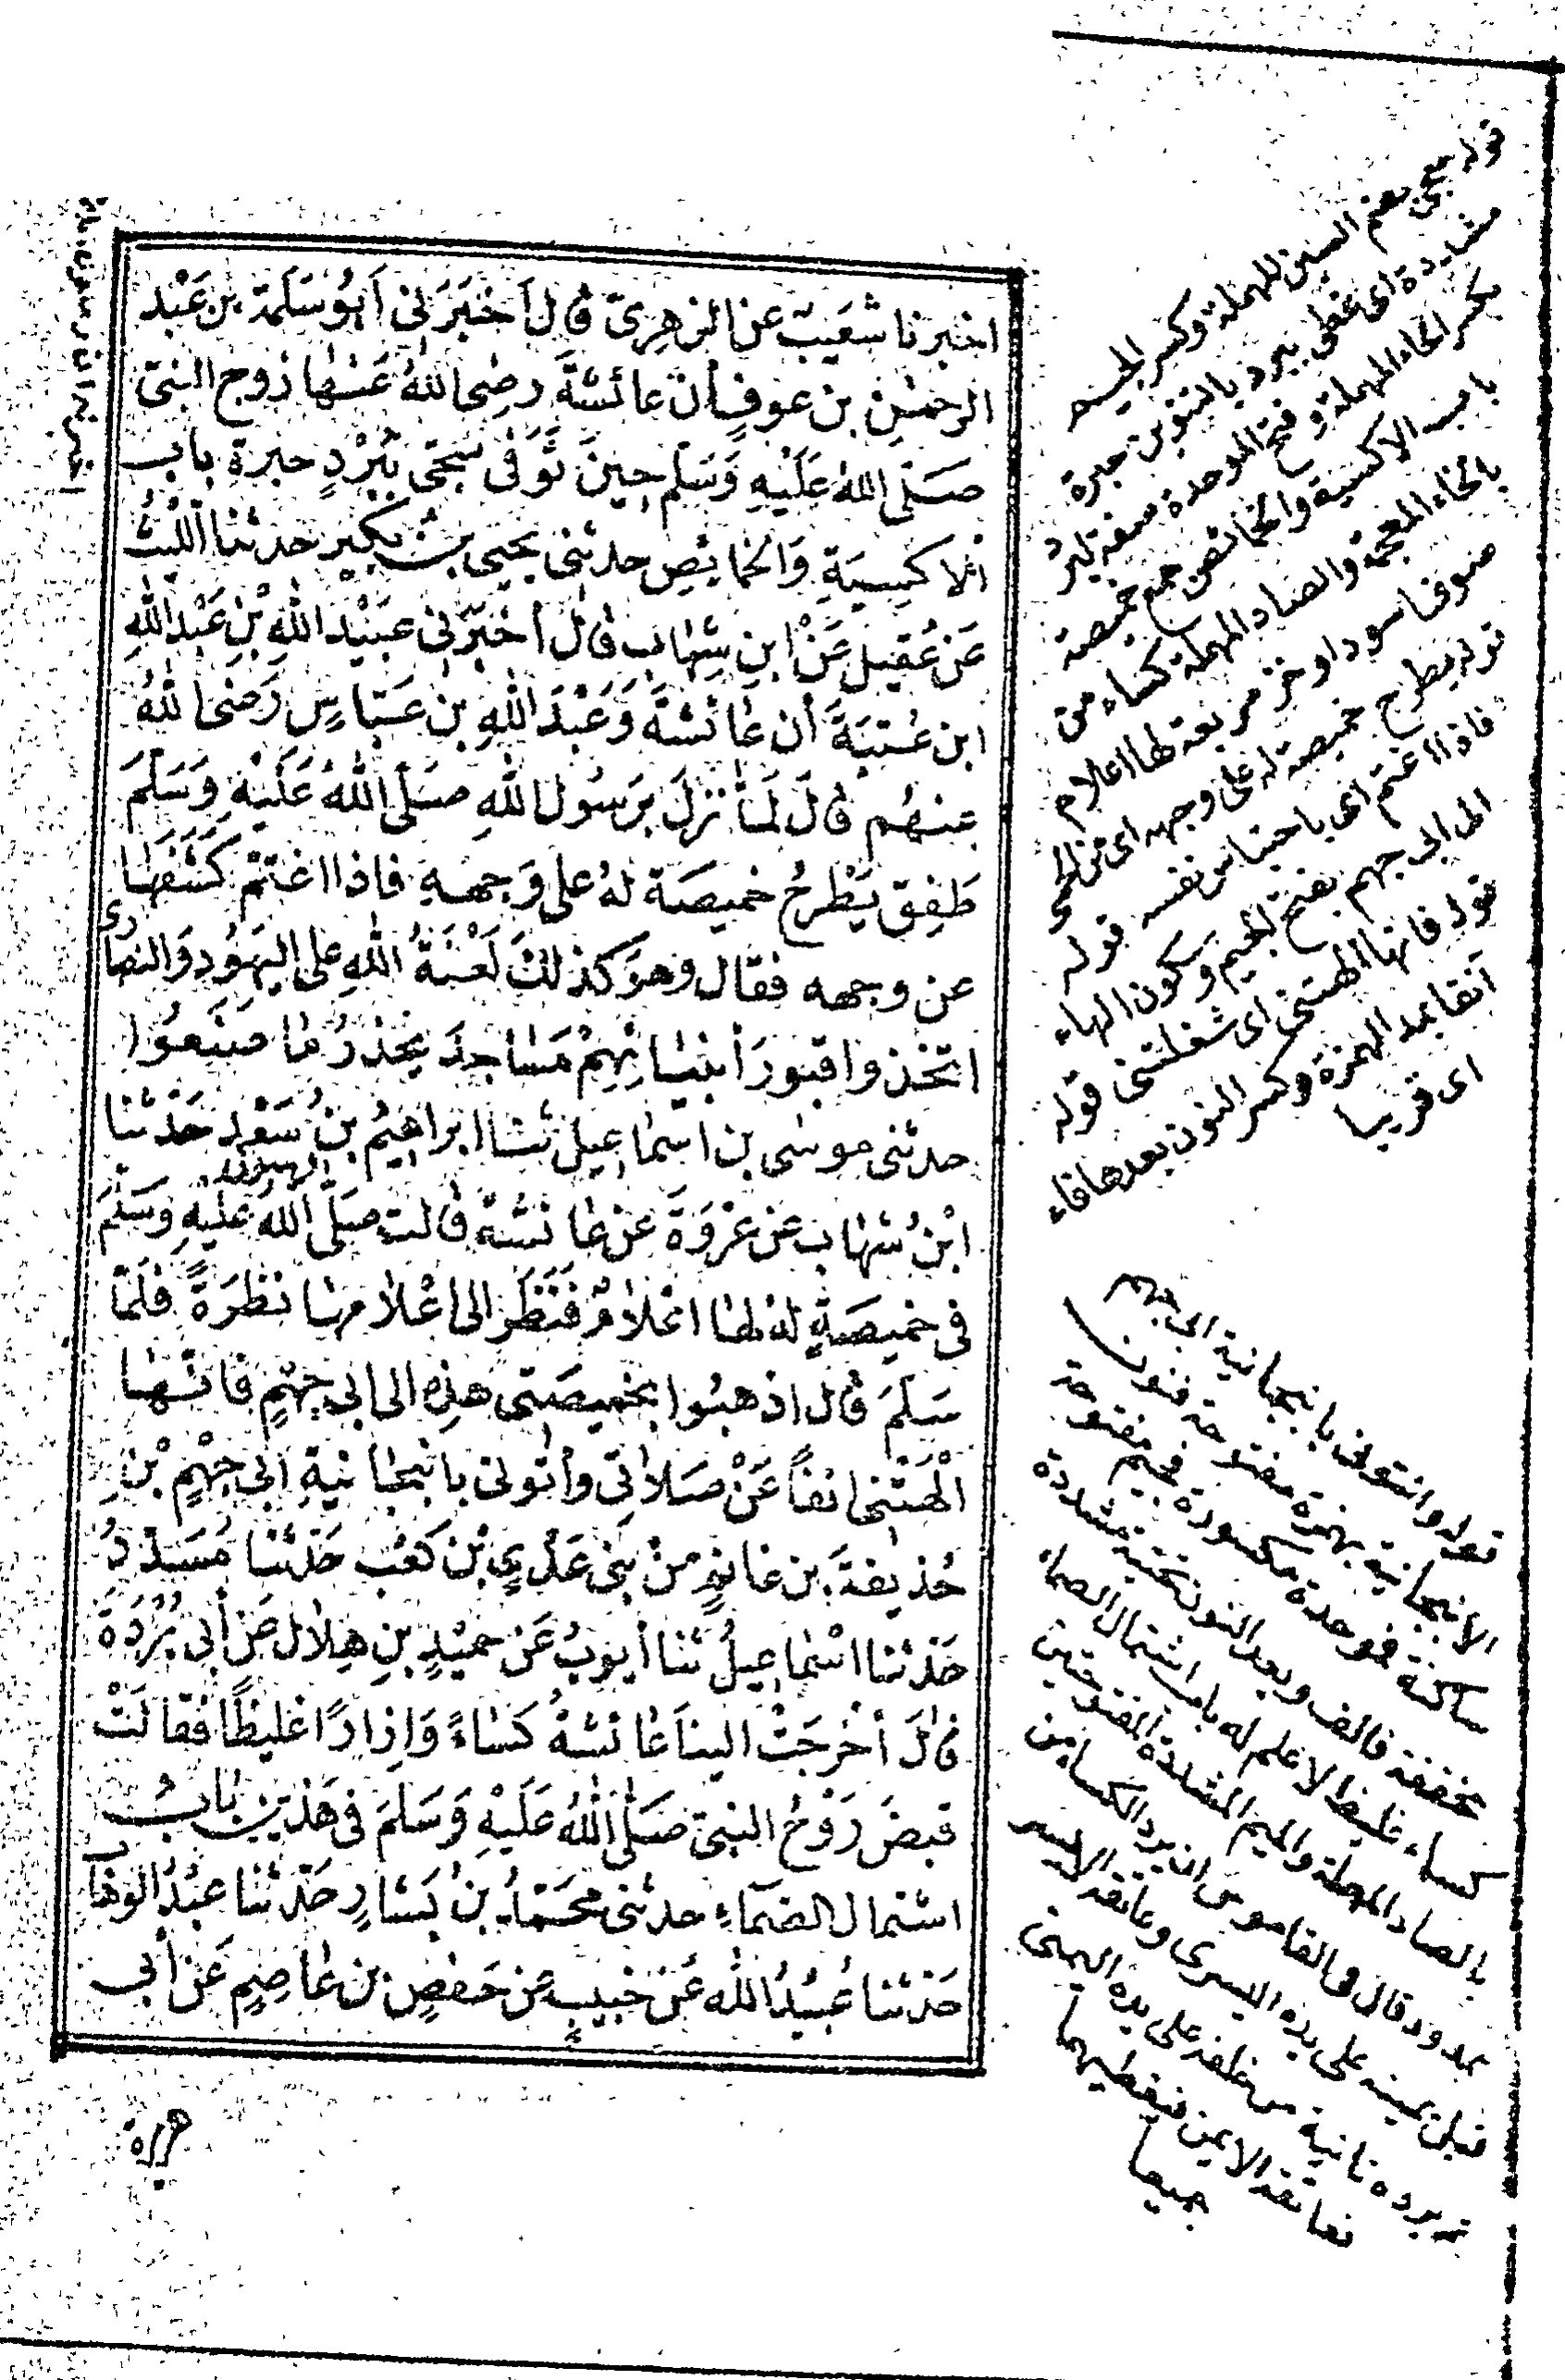 اخبرنا شعَيبٌ عن الزهرِىّ قال أخبَرَنى أبُو سَلَمة بن عَبْد
الرحمٰنِ بن عوفٍ أنّ عائشَةَ رضِى اللهُ عَنها زوج النبىّ
صَلّى اللهُ عَلَيْهِ وَسَلّم حِينَ تُوَفى سُجّى بُبرْدٍ حبرة باب
الاكسِيَةِ وَالخمايُصِ حدثنى يحيى بن بكيرٍ حدثنا اللّيثُ
عَن عُقيلٍ عَنْ ابن شِهَاب قال أخبَرَنى عبَيْد اللهِ بْن عَبْد اللهِ
ابن عُتبَةَ أن عَائشةَ وَعَبْدَ اللهِ بن عبّاسٍ رَضى اللهُ
عنهُم قالَ لمَّا نزلَ برَسُول اللهِ صَلّى اللهُ عَلَيْهِ وَسَلّمَ
طَفِقَ يَطْرحُ خميصَة لهُ على وَجههِ فاذا اغتمّ كشَفَها
عن وجهه فقال وهوَ كذلكَ لَعْنَةُ اللهِ على اليَهُودِ وَالنصارى
اتخذوا قبورَ أنبيَائِهِمْ مَسَاجدَ يحَذرُ مَا صَنعُوا
حدثنى موسٰى بن اسمَاعِيل ثنا ابراهِيمُ بنُ سَعْدٍ حَدثنا
ابْنُ شهَاب عن عرْوَةَ عن عائشة قالت صَلّى رسول الله اللهُ عَليهِ وَسَلّمَ
فى خميصَةٍ لهُ لها اعْلامٌ فنَظَرَ الى اعْلامهَا نظرَةً فلَمّا
سَلّمَ قال اذهبُوا بخميصَتى هذِه الى ابى جهْمٍ فانّها
ألْهَتْنى انفاً عَنْ صَلاتى وأتونى بانبجانيةِ ابى جهْمٍ بْنِ
حُذيفةَ بن غانمٍ من بنى عَدِيٍ بْن كعْب حَدثنا مُسَدّدُ
حَدثنا اسْماعيلُ ثنا أيوبُ عَن حميْدٍ بنِ هِلال عن أبى بُرْدَةَ
قالَ أخْرجَتْ الينَا عائشةُ كسَاءً وَازارًا غليظًا فقالَتْ
قبضَ رَوْحُ النبىّ صَلّى اللهُ عَلَيْهِ وَسَلمَ فى هَذين بَابُ
اشتمال الصَمّاءِ حدثنى محمّدُ بنُ بَشارٍ حَدثنا عبْدُ الوهّاب
حَدثنا عُبَيْدُ الله عَن خبيبٍ عَن حَفصٍ بن عَاصِمٍ عَن أبى
هريرة
قوله سجى بضم السين المهملة وكسر الجيم
مشددة اى غطى ببرد بالتنوين حبرة
بكسر الحاء المهملة وفتح الموحدة صفة لبرد
باب الاكسية والخمائص جمع خميصة
بالخاء المعجمة والصاد المهملة كساء من
صوف اسود او خز مربعة لها اعلام
قوله يطرح خميصة له على وجهه اى من الحمى
فاذا اغتم اى باحتباس نفسه قوله
الى ابى جهم بفتح الجيم وسكون الهاء
قوله فانها الهتنى اى شغلتنى قوله
انفا بمد الهمزة وكسر النون بعدها فاء
اى قريبا
قوله وائتونى بانبجانية ابى جهم
الانبجانية بهمزة مفتوحة فنون
ساكنة فموحدة مكسورة فجيم مفتوحة
مخففة فالف وبعد النون تحتية مشددة
كساء غليظ لا علم له باب اشتمال الصماء
بالصاد المهملة والميم المشددة المفتوحتين
ممدود قال فى القاموس ان يرد الكساء من
قبل يمينه على يده اليسرى وعاتقه الايسر
ثم يرده ثانية من خلفه على يده اليمنى
وعاتقه الايمن فيغطيهما
جميعا